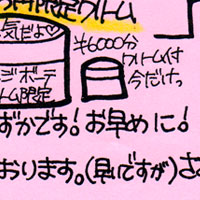 限定クリーム
気だよ♡
¥6000分
クリーム付
今だけっ。
ボーテ
ム限定
ずかです!お早めに!
おります。(見いですが)